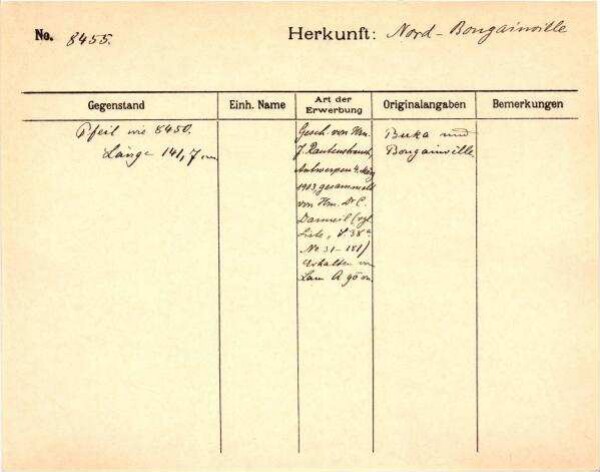 No. 8455.
Herkunft: Nord-Bougainville
Gegenstand
Einh. Name
Art der Erwerbung
Originalangaben
Bemerkungen
Pfeil wie 8450.
Länge 141,7 cm
Gesch. von Hrn.
J. Rautenstrauch,
Antwerpen
1913, gesammelt
von Hrn. Dr C.
Damm
Liste, S. 38
No 31-181)
Erhalten von
Buka und
Bougainville